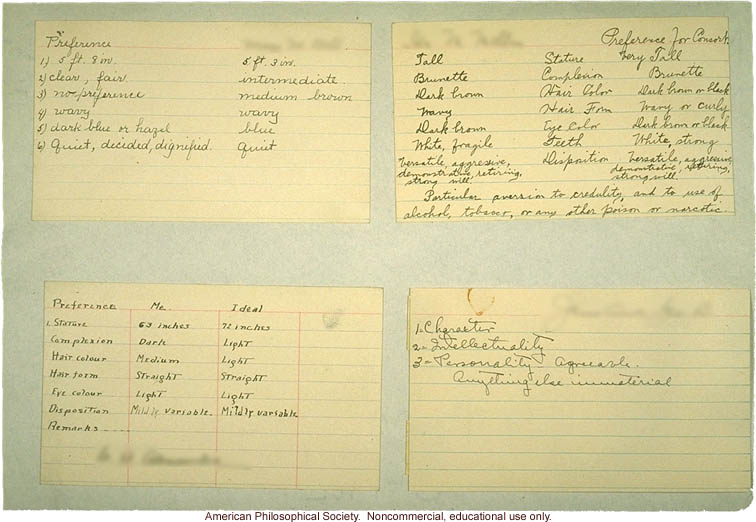 Preference
1) 5 ft. 8 in. 5 ft. 3 in.
2) clear, fair intermediate
3) no preference medium brown
4) wavy wavy
5) dark blue or hazel blue
6) Quiet, decided, dignified. quiet
Preference for Consort
Tall Stature Very Tall
Brunette Complexion Brunette
Dark brown Hair Color Dark brown or black
Wavy Hair Form Wavy or curly
Dark brown Eye Color Dark brown or black
White, fragile Teeth White, strong
Versatile, aggressive, Disposition Versatile, aggressive,
demonstrative, retiring, demonstrative, retiring,
strong will. strong will.
Particular aversion to credulity, and to use of
alcohol, tobacco, or any other poison or narcotic
Preference Me Ideal
1. Stature 63 inches 72 inches
Complexion Dark Light
Hair colour Medium Light
Hair form Straight Straight
Eye colour Light Light
Disposition Mildly variable. Mildly variable
Remarks
1- Character
2= Intellectuality
3= Personality - Agreeable.
Anything else immaterial
American Philosophical Society. Noncommercial, educational use only.